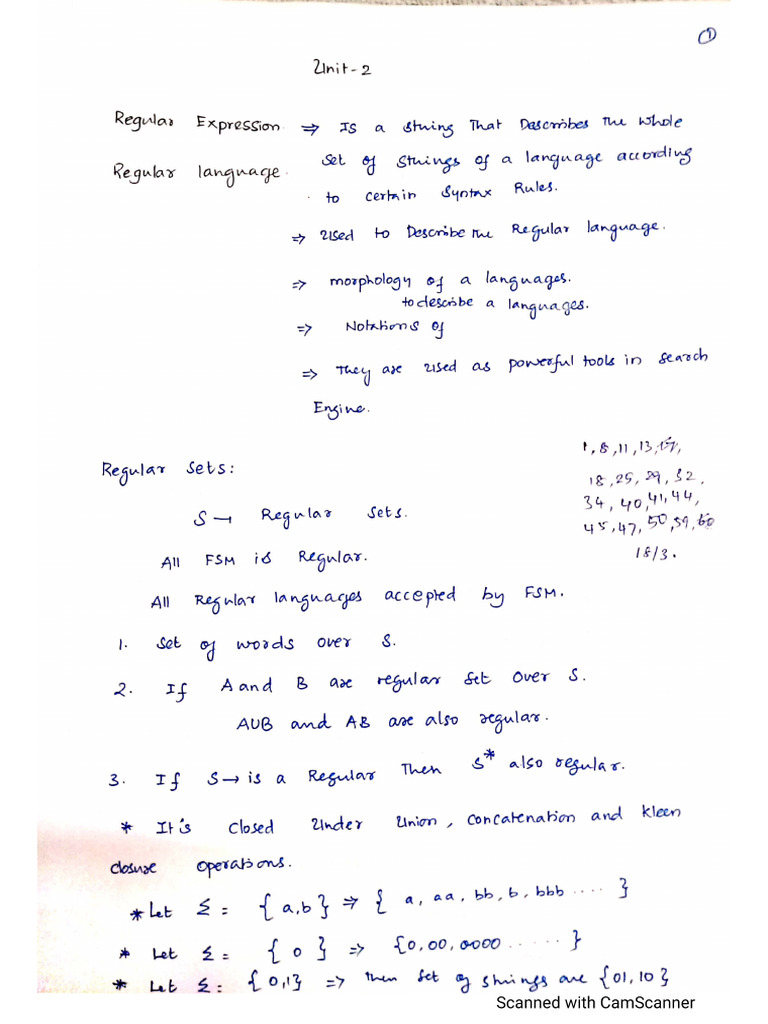 1
Unit-2
Regular Expression ⇒ Is a string That Describes The whole
Regular language. set of strings of a language according
to certain syntax Rules.
⇒ Used to Describe The Regular language.
⇒ morphology of a languages.
to describe a languages.
⇒ Notations of
⇒ They are used as powerful tools in search
Engine.
1, 8, 11, 13, 
Regular sets:
18, 25, 29, 32,
S → Regular sets.
34, 40, 41, 44,
45, 47, 50, 59, 60
18/3.
All FSM is Regular.
All Regular languages accepted by FSM.
1. set of words over S.
2. If A and B are regular set over S.
AUB and AB are also regular.
3. If S → is a Regular Then S* also regular.
* It's closed Under Union, concatenation and kleen
closure operations.
* Let Σ = {a,b} ⇒ { a, aa, bb, b, bbb .... }
* Let Σ = { 0 } ⇒ {0,00,0000 ...... }
* Let Σ = {0,1} ⇒ then set of strings are {01,10}
Scanned with CamScanner